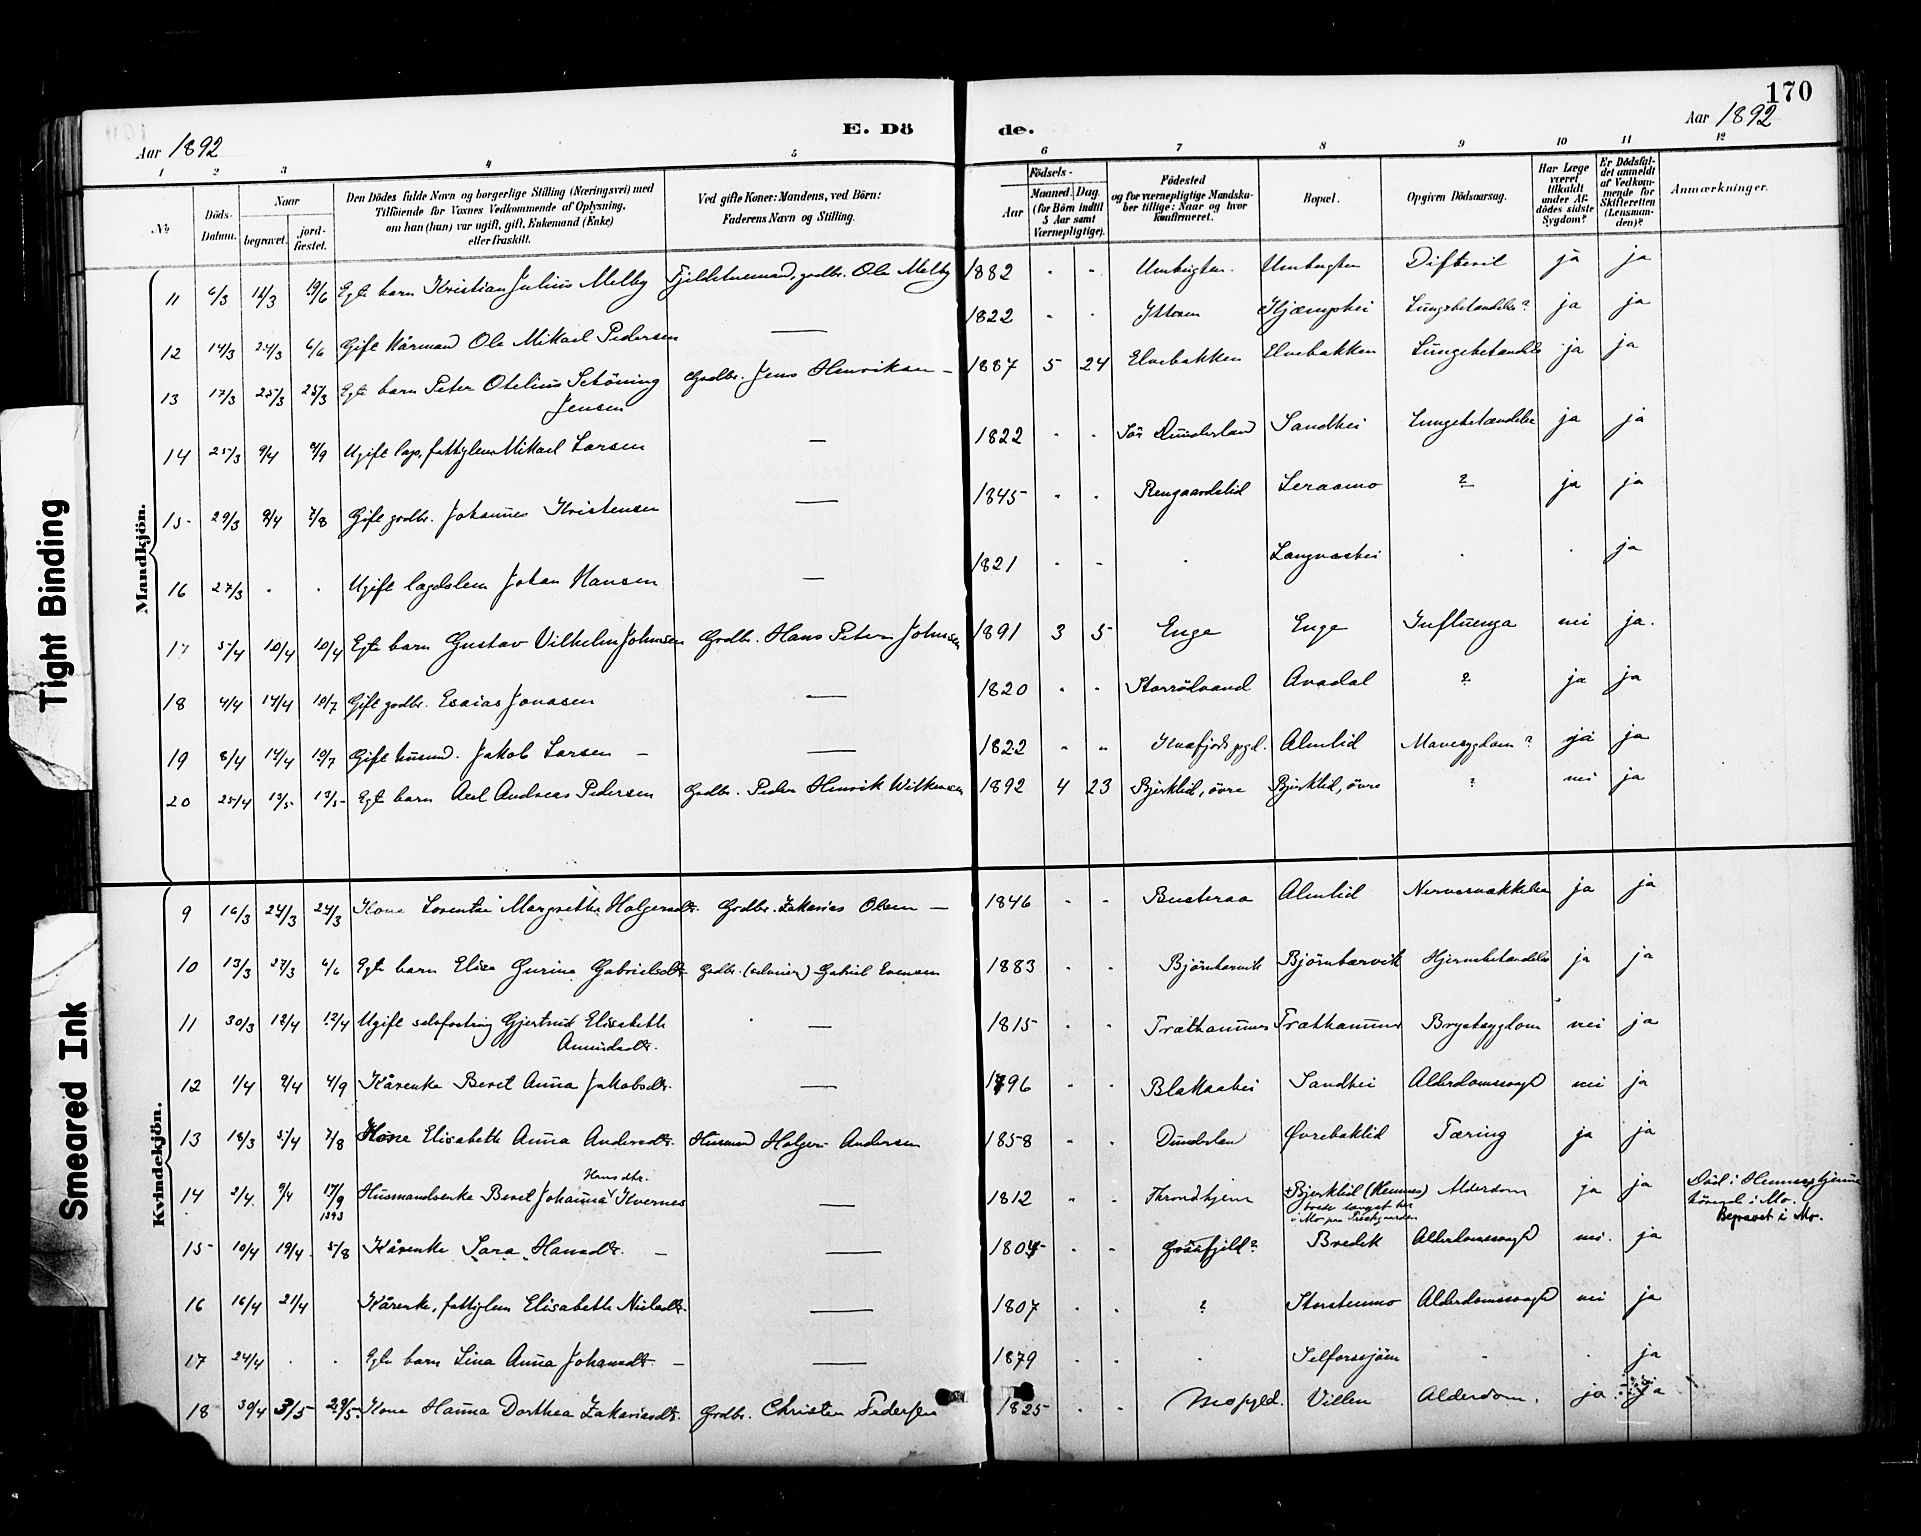 170
Aar 1892
E. Dö
de.
Aar 1892
1 2 3 4 5 6 7 8 9 10 11 12
No
Döds-
Datum.
Naar
begravet.
jord-
fæstet.
Den Dödes fulde Navn og borgerlige Stilling (Næringsvei) med
Tilföiende for Voxnes Vedkommende af Oplysning,
om han (hun) var ugift, gift, Enkemand (Enke)
eller fraskilt.
Ved gifte Koner: Mandens, ved Börn:
Faderens Navn og Stilling.
Födsels-
Aar
Maaned. Dag.
(for Börn indtil
5 Aar samt
Værnepligtige).
Födested
og for værnepligtige Mandska-
ber tillige: Naar og hvor
konfirmeret.
Bopæl.
Opgiven Dödsaarsag.
Har Læge
været
tilkaldt
under Af-
dödes sidste
Sygdom?
Er Dödsfal-
det anmeldt
af Vedkom-
mende for
Skifteretten
(Lensman-
den)?
Anmærkninger.
Mandkjön.
11 6/3 12/3 19/6 Egte barn Kristian Julius Melby Fjeldstuemand, grdbr. Ole Melby 1882 " " Umbugten. Umbugten Difterit ja ja
12 14/3 24/3 6/6 Gift Kårmand Ole Mikael Pedersen — 1822 " " Kjæmphei Lungebetændelse? ja ja
13 17/3 25/3 25/3 Egte barn Peter Otelius Schöning Grdbr. Jens Henriksen — 1887 5 24 Elvebakken Elvebakken Lungebetændelse ja ja
Jensen
14 25/3 9/4 4/9 Ugift lægd, fattiglem Mikael Larsen — 1822 " " Sör Dunderland Sandhei Lungebetændelse ja ja
15 29/3 9/4 7/8 Gift grdbr. Johannes Kristensen — 1845 " " Rengaardslid Leraamo ? ja ja
16 27/3 . . Ugift lægdslem Johan Hansen — 1821 " " . Langvashei . . ja
17 5/4 10/4 10/4 Egte barn Gustav Vilhelm Johnsen Grdbr. Hans Peter Johnsen 1891 3 5 Enge Enge Influenza nei ja.
18 4/4 14/4 10/7 Gift grdbr. Esaias Jonasen — 1820 " " Storrölvand Avadal ? ja ja
19 8/4 14/4 10/7 Gift husmd. Jakob Larsen — — 1822 " " pgd. Almlid Mavesygdom? ja ja
20 25/4 13/5 13/5 Egte barn Axel Andreas Pedersen Grdbr. Peder Henrik Wilkensen 1892 4 23 Bjerklid, övre Bjerklid, övre ? nei ja
Kvindekjön.
9 16/3 24/3 24/3 Kone Lorentse Margrethe Holgersdtr. Grdbr. Zakarias Olsen — 1846 " " Busteraa Almlid ja ja
10 13/3 27/3 6/6 Egte barn Elisa Gurine Gabrielsdtr. Grdbr. Gabriel Evensen 1883 . . Björnbærvik Björnbærvik Hjernebetændelse ja ja
11 30/3 12/4 12/4 Ugift selvfostring Gjertrud Elisabeth . — 1815 . . Træthammer Træthammer Brystsygdom nei ja
Amundsdtr.
12 1/4 9/4 4/9 Kårenke Beret Anna Jakobsdtr. — 1796 " " Blakaahei Sandhei Alderdomssvaghd nei ja
13 18/3 5/4 7/8 Kone Elisabeth Anna Andersdtr. Husmand Holger Andersen 1858 " " Dunderlan Øvrebaklid Tæring ja ja
14 2/4 9/4 17/9 1893 Husmandsenke Beret Johanna Hansdtr. Kvernes — 1812 " " Throndhjem Bjerklid (Hemnes) Alderdom ja ja Död i Hemnes, hjemme-
i Mo paa Prestgaarden
hörende i Mo.
Begravet i Mo.
15 10/4 19/4 5/8 Kårenke Sara Hansdtr. — — 1804 . . Gråfjeld? Bredek Alderdomssvaghd nei. ja
16 16/4 21/4 Kårenke, fattiglem Elisabeth Nielsdtr. — 1807 . . ? Storstenmo Alderdomssvaghd nei ja
17 24/4 . . Egte barn Lina Anna Johansdtr. — — 1879 . . . Selforssjöen . . ja
18 30/4 3/5 29/5 Kone Hanna Dorthea Zakariasdtr. Grdbr. Christen Pedersen 1825 . . Mo pgld. Villen Alderdom. ja ja
Tight Binding
Smeared Ink